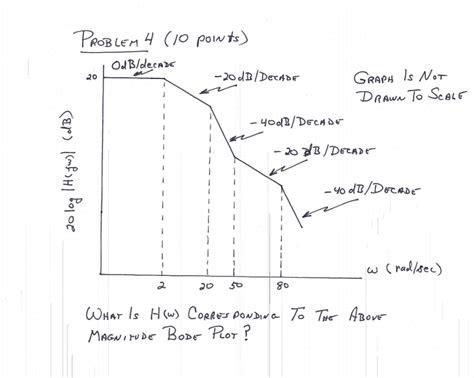 PROBLEM 4 (10 POINTS)
0dB/decade
-20dB/DECADE
GRAPH IS NOT
DRAWN TO SCALE
20
-40dB/DECADE
-20 dB/DECADE
-40dB/DECADE
20 log |H(jω)| (dB)
2 20 50 80
ω (rad/sec)
WHAT IS H(ω) CORRESPONDING TO THE ABOVE
MAGNITUDE BODE PLOT?